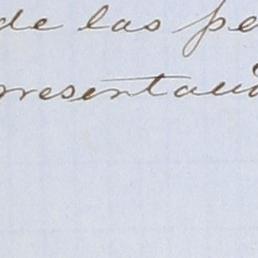 de las pe
presentació